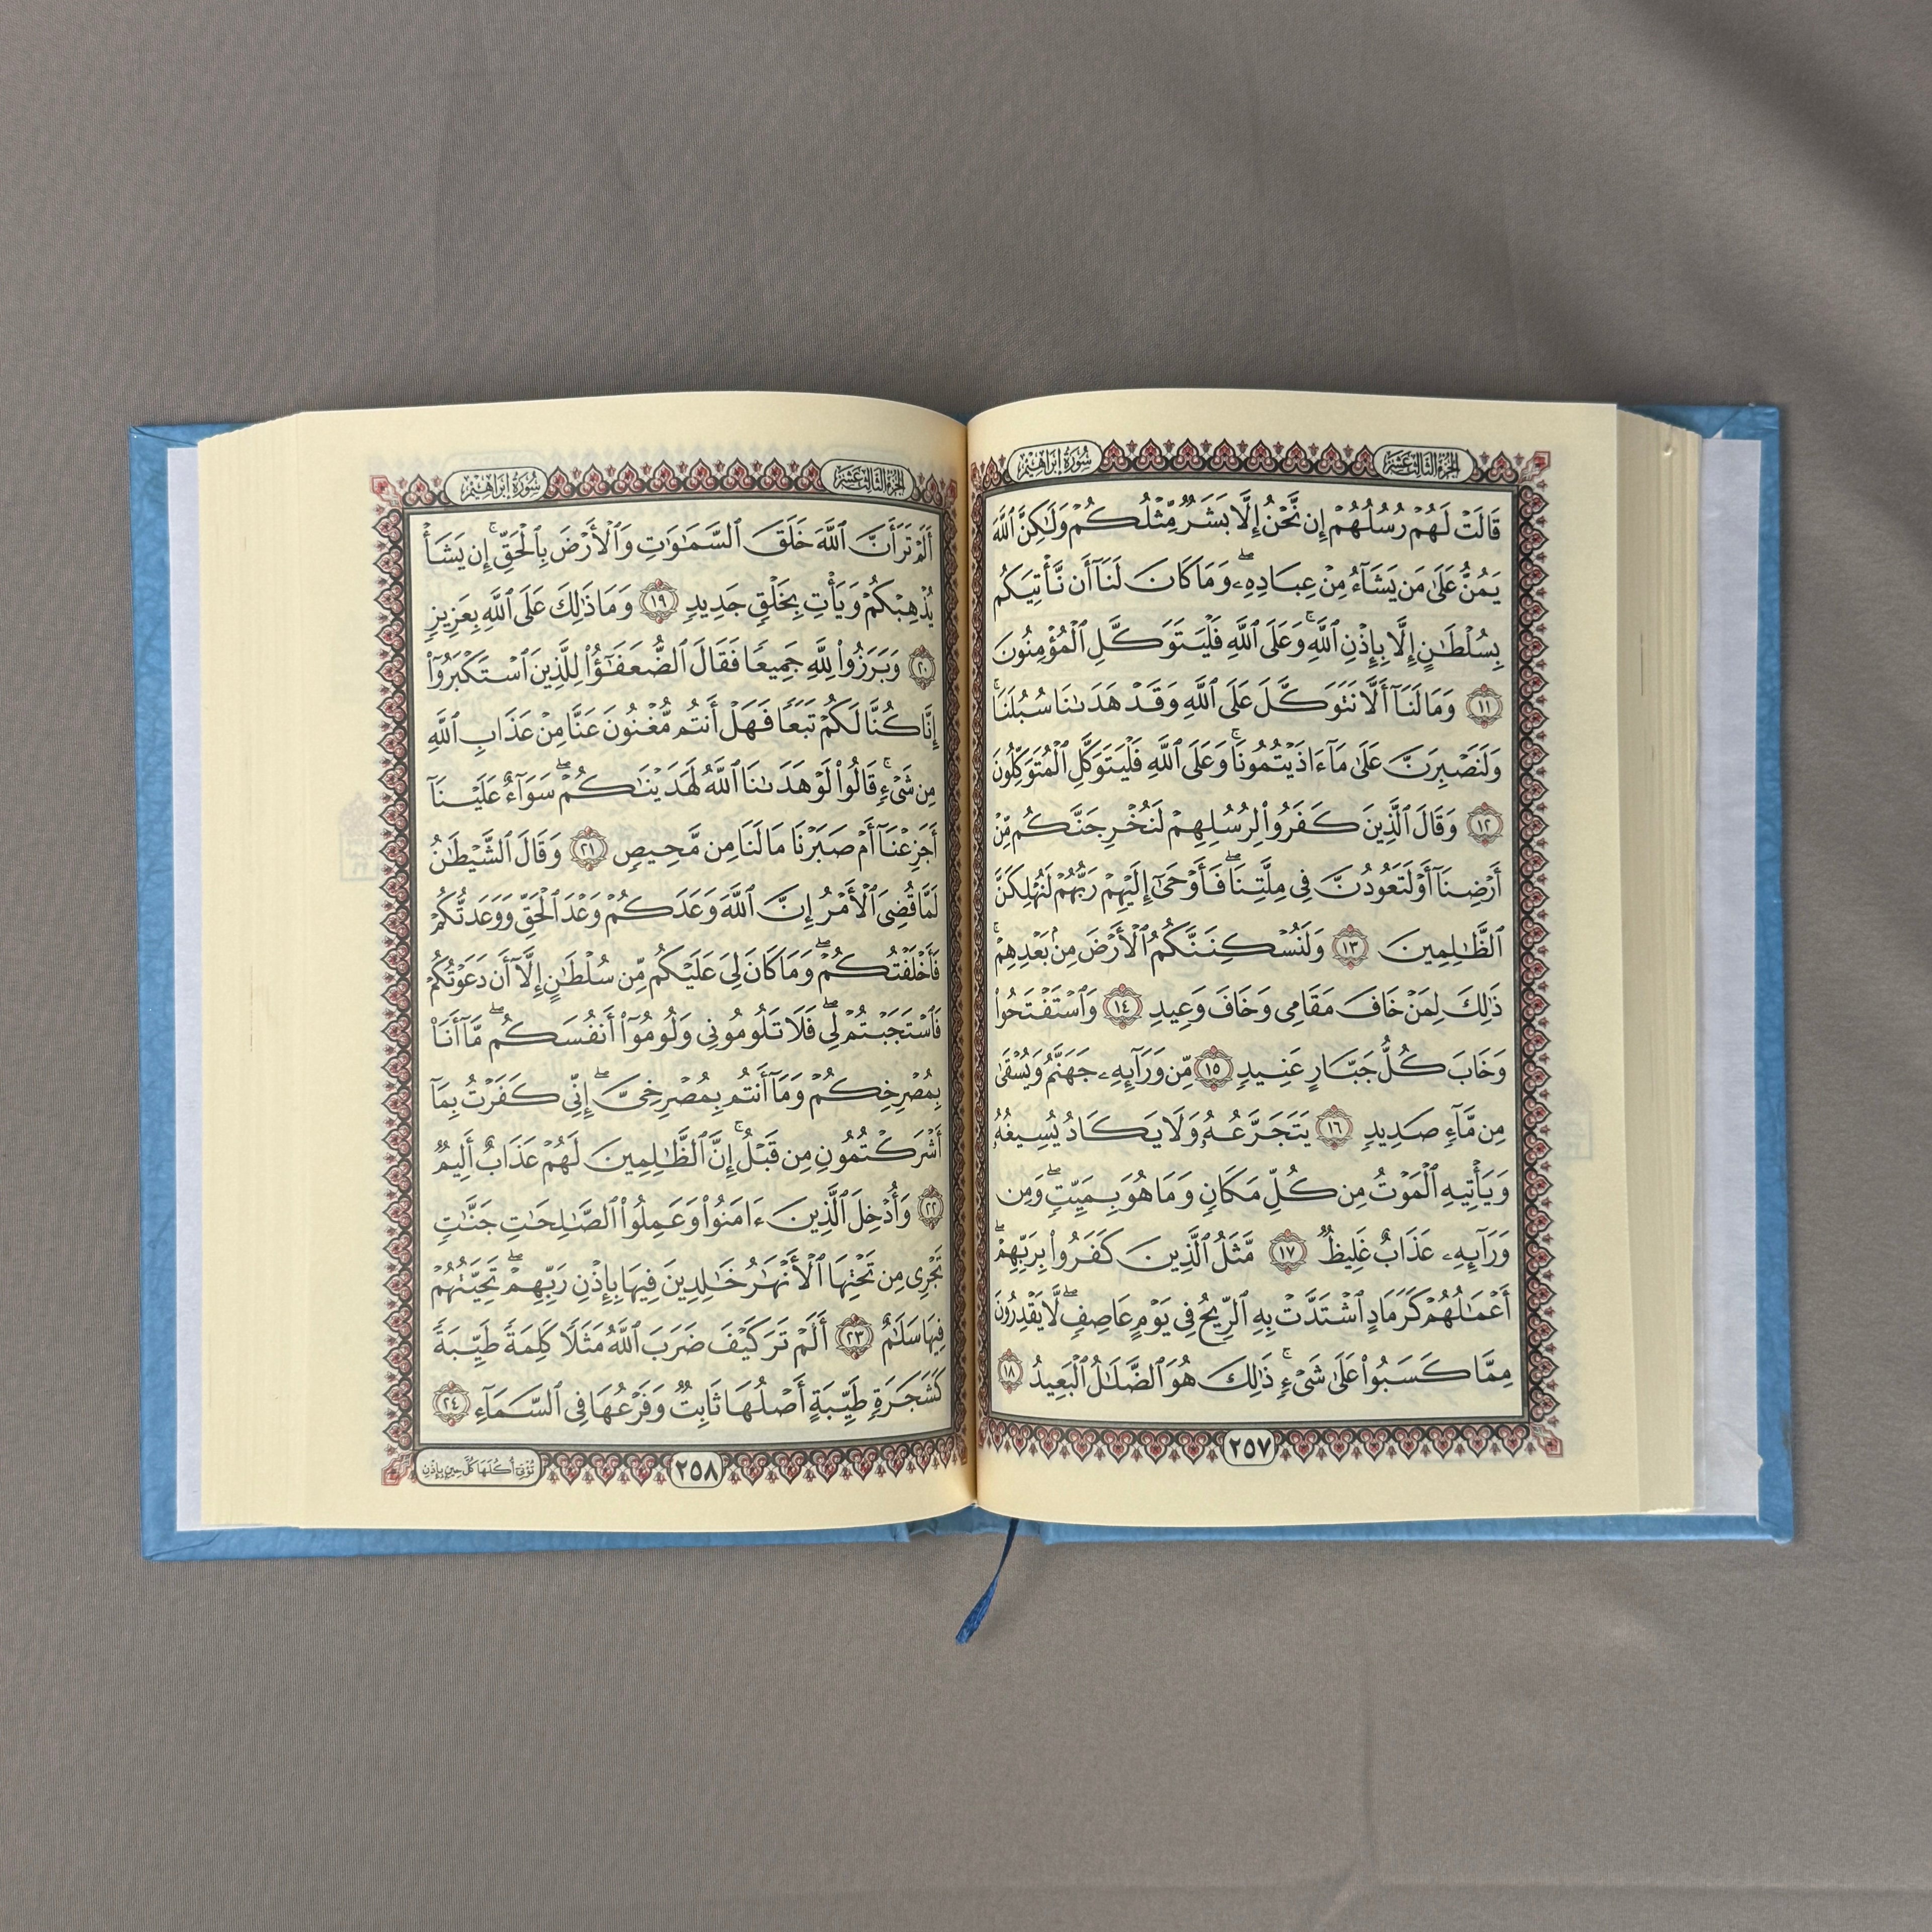 الجزء الثالث عشر
سورة إبراهيم
قَالَتْ لَهُمْ رُسُلُهُمْ إِن نَّحْنُ إِلَّا بَشَرٌ مِّثْلُكُمْ وَلَٰكِنَّ ٱللَّهَ
يَمُنُّ عَلَىٰ مَن يَشَآءُ مِنْ عِبَادِهِۦ ۖ وَمَا كَانَ لَنَآ أَن نَّأْتِيَكُم
بِسُلْطَٰنٍ إِلَّا بِإِذْنِ ٱللَّهِ ۚ وَعَلَى ٱللَّهِ فَلْيَتَوَكَّلِ ٱلْمُؤْمِنُونَ
١١ وَمَا لَنَآ أَلَّا نَتَوَكَّلَ عَلَى ٱللَّهِ وَقَدْ هَدَىٰنَا سُبُلَنَا ۚ
وَلَنَصْبِرَنَّ عَلَىٰ مَآ ءَاذَيْتُمُونَا ۚ وَعَلَى ٱللَّهِ فَلْيَتَوَكَّلِ ٱلْمُتَوَكِّلُونَ
١٢ وَقَالَ ٱلَّذِينَ كَفَرُوا۟ لِرُسُلِهِمْ لَنُخْرِجَنَّكُم مِّنْ
أَرْضِنَآ أَوْ لَتَعُودُنَّ فِى مِلَّتِنَا ۖ فَأَوْحَىٰٓ إِلَيْهِمْ رَبُّهُمْ لَنُهْلِكَنَّ
ٱلظَّٰلِمِينَ ١٣ وَلَنُسْكِنَنَّكُمُ ٱلْأَرْضَ مِنۢ بَعْدِهِمْ ۚ
ذَٰلِكَ لِمَنْ خَافَ مَقَامِى وَخَافَ وَعِيدِ ١٤ وَٱسْتَفْتَحُوا۟
وَخَابَ كُلُّ جَبَّارٍ عَنِيدٍ ١٥ مِّن وَرَآئِهِۦ جَهَنَّمُ وَيُسْقَىٰ
مِن مَّآءٍ صَدِيدٍ ١٦ يَتَجَرَّعُهُۥ وَلَا يَكَادُ يُسِيغُهُۥ
وَيَأْتِيهِ ٱلْمَوْتُ مِن كُلِّ مَكَانٍ وَمَا هُوَ بِمَيِّتٍ ۖ وَمِن
وَرَآئِهِۦ عَذَابٌ غَلِيظٌ ١٧ مَّثَلُ ٱلَّذِينَ كَفَرُوا۟ بِرَبِّهِمْ ۖ
أَعْمَٰلُهُمْ كَرَمَادٍ ٱشْتَدَّتْ بِهِ ٱلرِّيحُ فِى يَوْمٍ عَاصِفٍ ۖ لَّا يَقْدِرُونَ
مِمَّا كَسَبُوا۟ عَلَىٰ شَىْءٍ ۚ ذَٰلِكَ هُوَ ٱلضَّلَٰلُ ٱلْبَعِيدُ ١٨
٢٥٧
الجزء الثالث عشر
سورة إبراهيم
أَلَمْ تَرَ أَنَّ ٱللَّهَ خَلَقَ ٱلسَّمَٰوَٰتِ وَٱلْأَرْضَ بِٱلْحَقِّ ۚ إِن يَشَأْ
يُذْهِبْكُمْ وَيَأْتِ بِخَلْقٍ جَدِيدٍ ١٩ وَمَا ذَٰلِكَ عَلَى ٱللَّهِ بِعَزِيزٍ
٢٠ وَبَرَزُوا۟ لِلَّهِ جَمِيعًا فَقَالَ ٱلضُّعَفَٰٓؤُا۟ لِلَّذِينَ ٱسْتَكْبَرُوٓا۟
إِنَّا كُنَّا لَكُمْ تَبَعًا فَهَلْ أَنتُم مُّغْنُونَ عَنَّا مِنْ عَذَابِ ٱللَّهِ
مِن شَىْءٍ ۚ قَالُوا۟ لَوْ هَدَىٰنَا ٱللَّهُ لَهَدَيْنَٰكُمْ ۖ سَوَآءٌ عَلَيْنَآ
أَجَزِعْنَآ أَمْ صَبَرْنَا مَا لَنَا مِن مَّحِيصٍ ٢١ وَقَالَ ٱلشَّيْطَٰنُ
لَمَّا قُضِىَ ٱلْأَمْرُ إِنَّ ٱللَّهَ وَعَدَكُمْ وَعْدَ ٱلْحَقِّ وَوَعَدتُّكُمْ
فَأَخْلَفْتُكُمْ ۖ وَمَا كَانَ لِىَ عَلَيْكُم مِّن سُلْطَٰنٍ إِلَّآ أَن دَعَوْتُكُمْ
فَٱسْتَجَبْتُمْ لِى ۖ فَلَا تَلُومُونِى وَلُومُوٓا۟ أَنفُسَكُم ۖ مَّآ أَنَا۠
بِمُصْرِخِكُمْ وَمَآ أَنتُم بِمُصْرِخِىَّ ۖ إِنِّى كَفَرْتُ بِمَآ
أَشْرَكْتُمُونِ مِن قَبْلُ ۗ إِنَّ ٱلظَّٰلِمِينَ لَهُمْ عَذَابٌ أَلِيمٌ
٢٢ وَأُدْخِلَ ٱلَّذِينَ ءَامَنُوا۟ وَعَمِلُوا۟ ٱلصَّٰلِحَٰتِ جَنَّٰتٍ
تَجْرِى مِن تَحْتِهَا ٱلْأَنْهَٰرُ خَٰلِدِينَ فِيهَا بِإِذْنِ رَبِّهِمْ ۖ تَحِيَّتُهُمْ
فِيهَا سَلَٰمٌ ٢٣ أَلَمْ تَرَ كَيْفَ ضَرَبَ ٱللَّهُ مَثَلًا كَلِمَةً طَيِّبَةً
كَشَجَرَةٍ طَيِّبَةٍ أَصْلُهَا ثَابِتٌ وَفَرْعُهَا فِى ٱلسَّمَآءِ ٢٤
٢٥٨
تُؤْتِىٓ أُكُلَهَا كُلَّ حِينٍ بِإِذْنِ